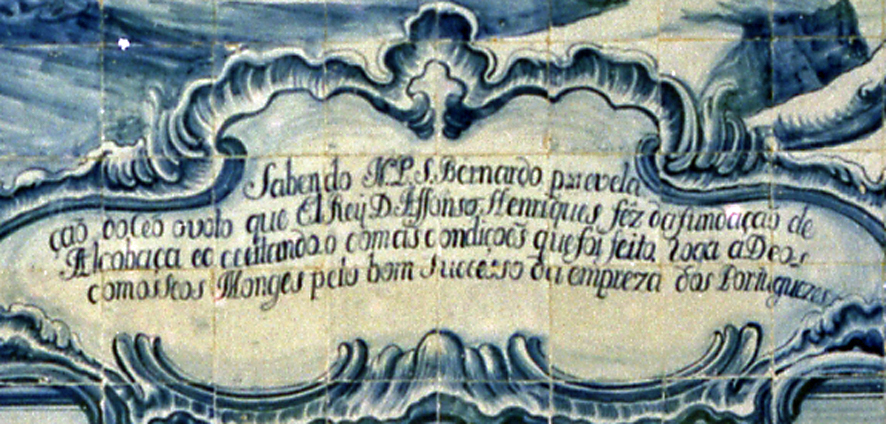 Sabendo N.P.S.Bernardo p.revela
çaõ do Ceo o voto que ElRey D. Affonso Henriques fêz da fundaçaõ de
Alcobaça eo aceitando.o com as condiçoẽs que foi feito, roga a Deos
com os seos Monges pelo bom successo da empreza dos Portuguezes.